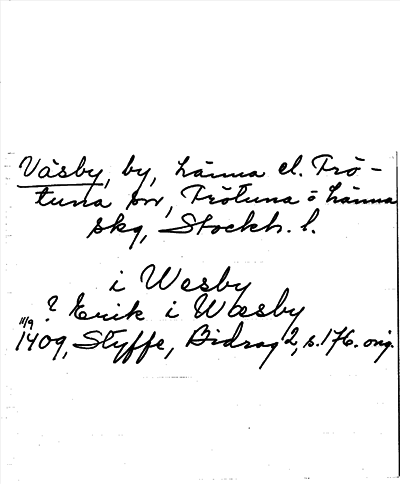 Väsby, by, Länna el. Frö-
tuna sn, Frötuna o Länna
skg, Stockh. l.
i Wesby
? Erik i Wæsby
11/9 1409, Styffe, Bidrag 2, s. 176. orig.